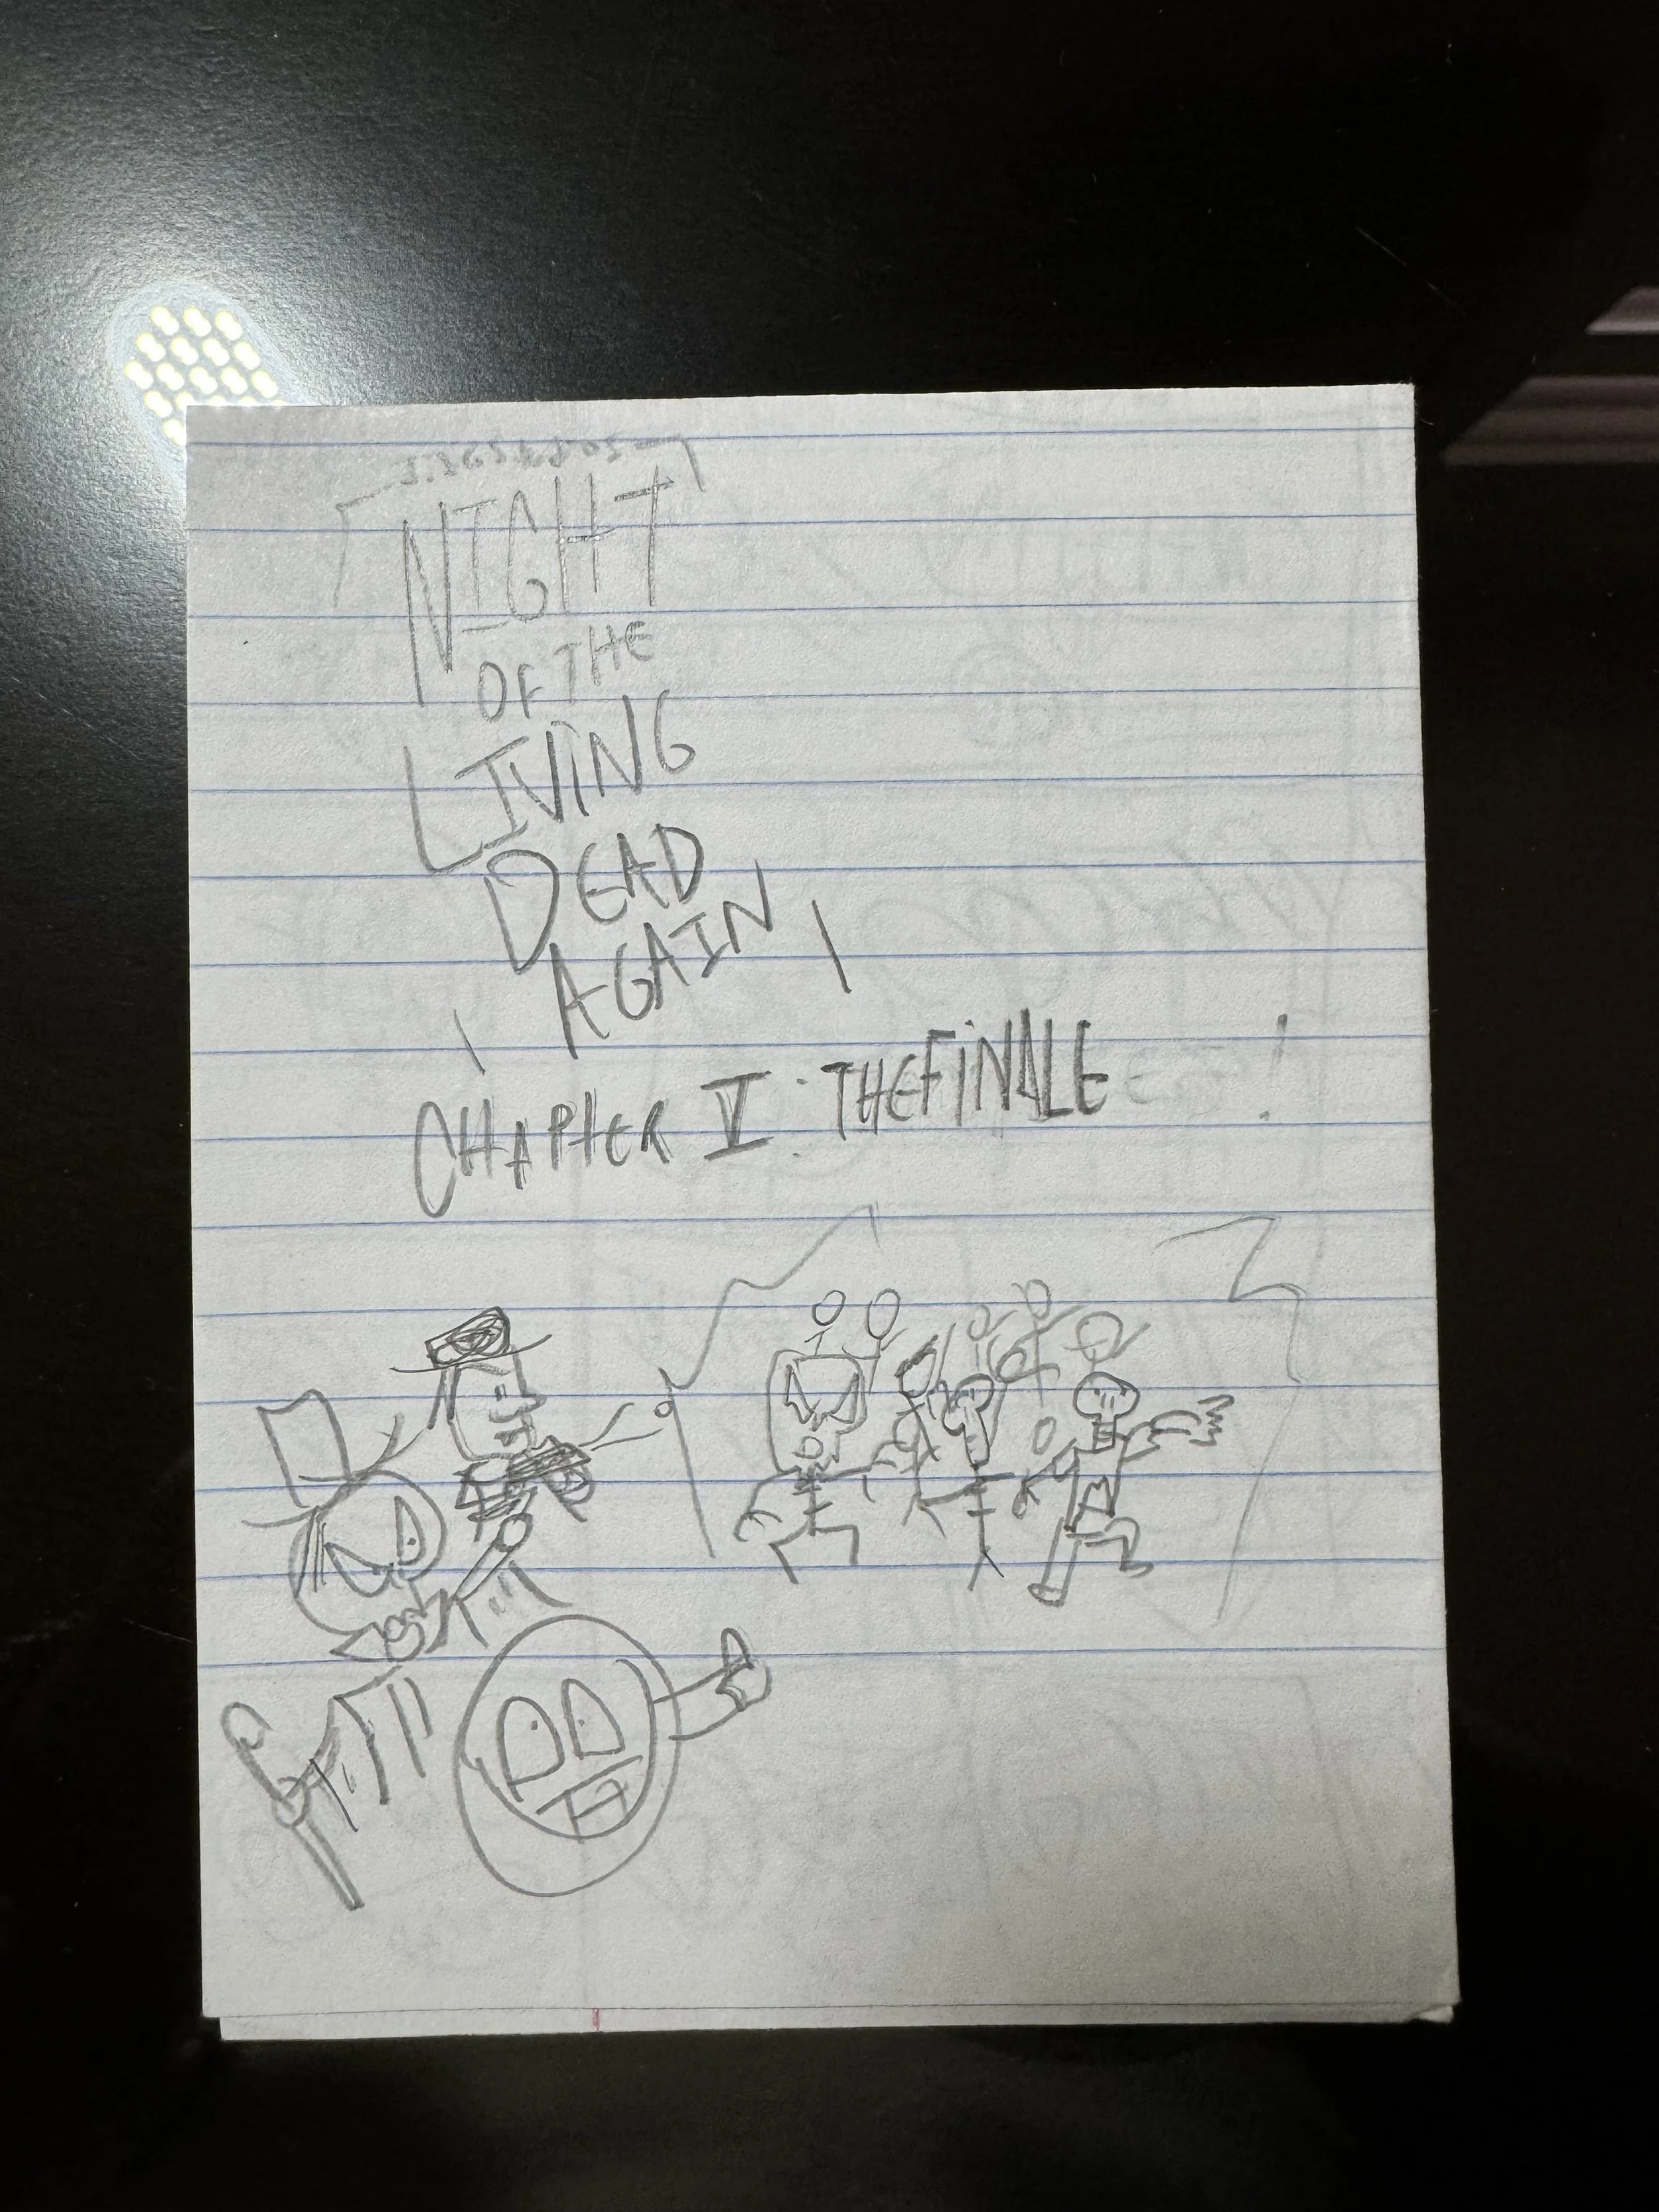 NIGHT
OF THE
LIVING
DEAD
AGAIN
CHAPTER V: THE FINALE !